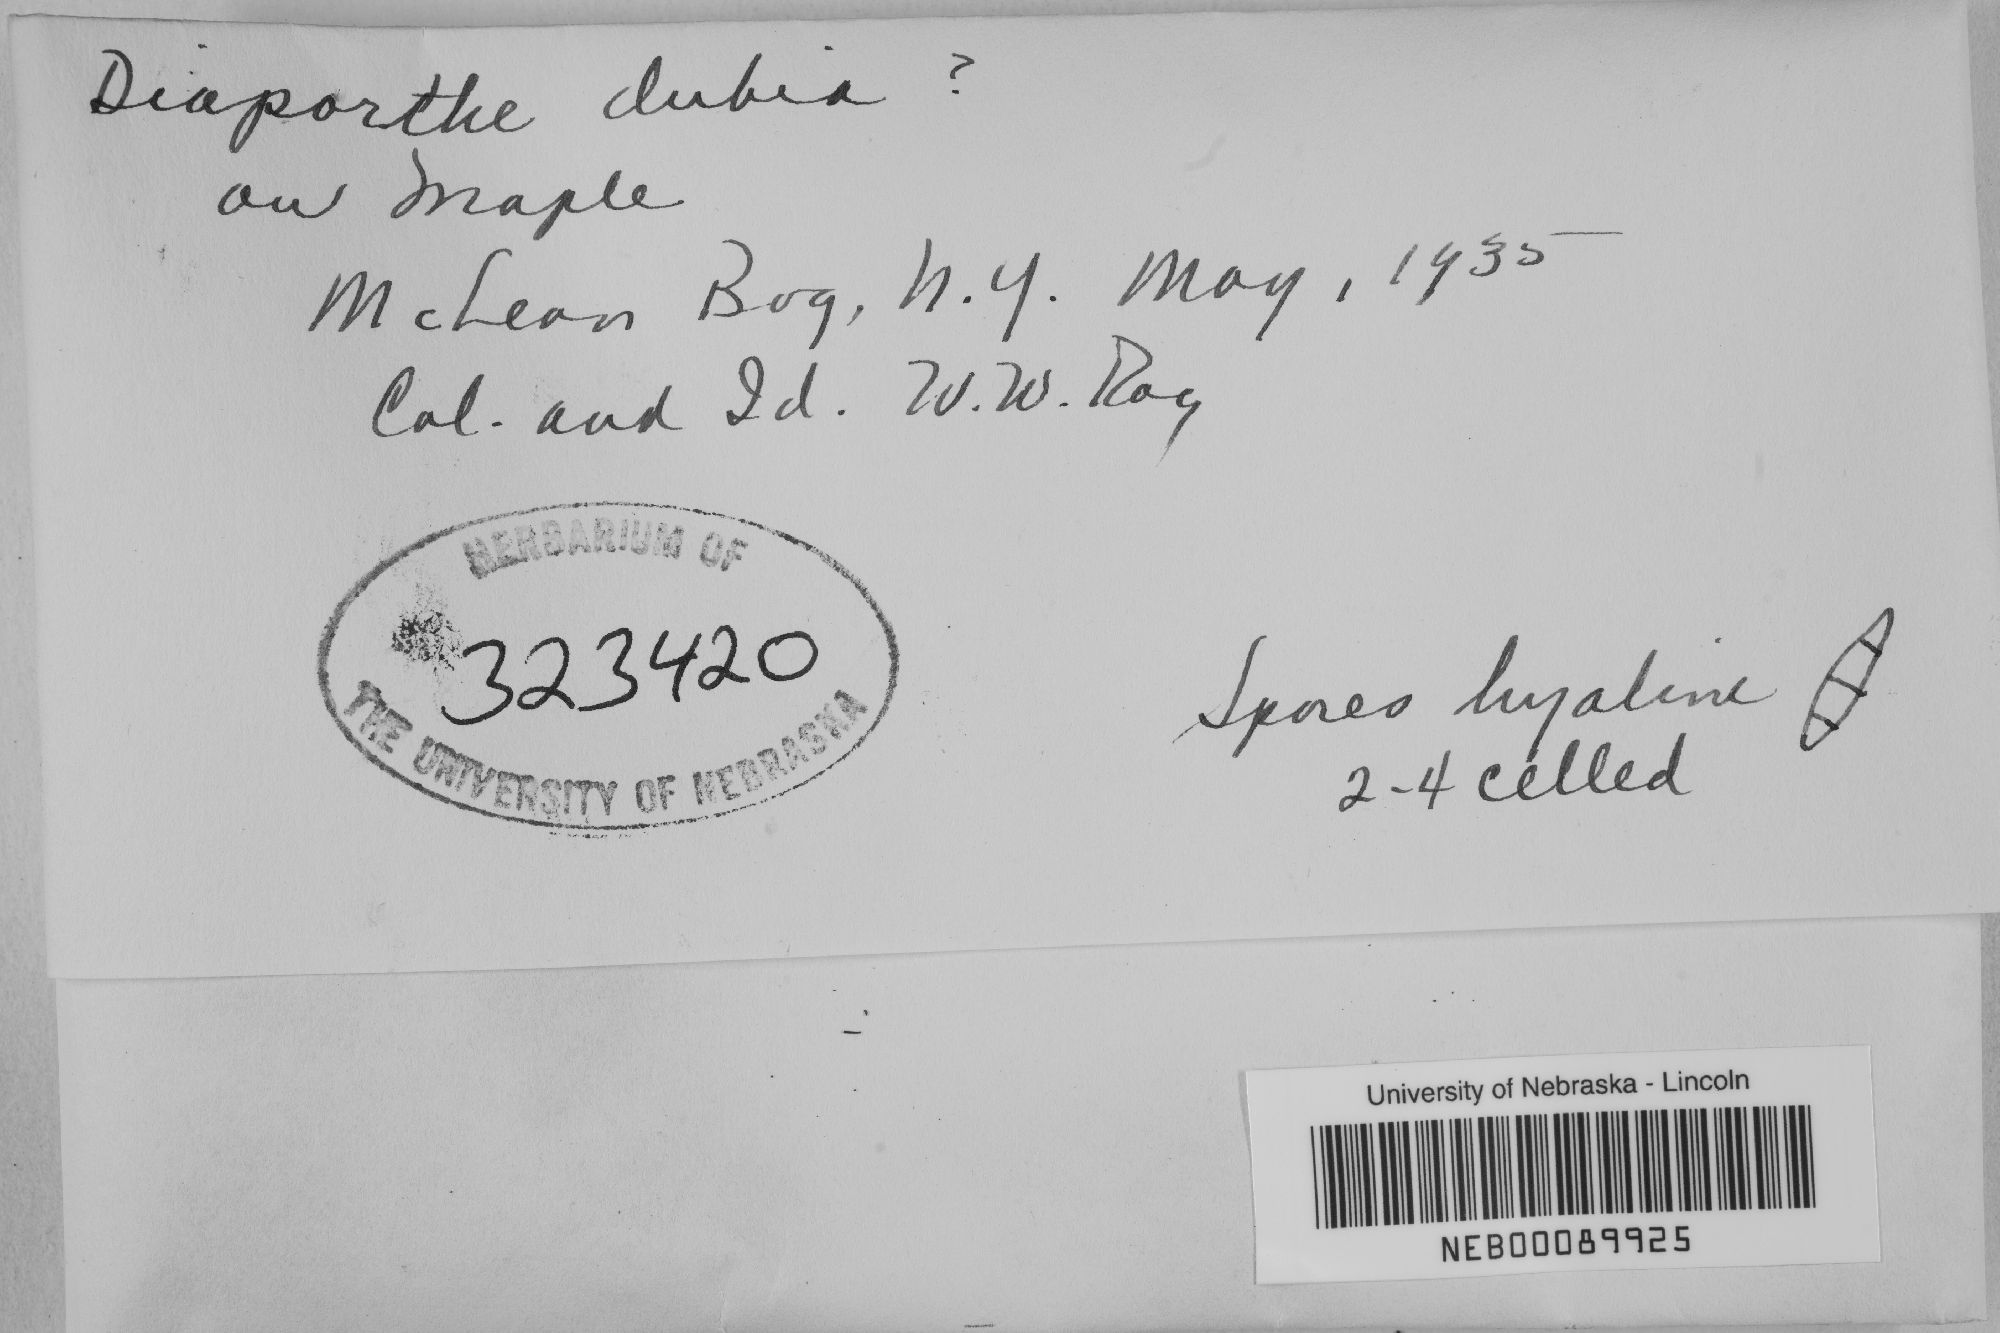 Diaporthe dubia ?
on Maple
McLean Bog, N.Y. May, 1935
Col. and Id. W.W. Ray
HERBARIUM OF
323420
THE UNIVERSITY OF NEBRASKA
Spores hyaline
2-4 celled
University of Nebraska - Lincoln
NEB00089925